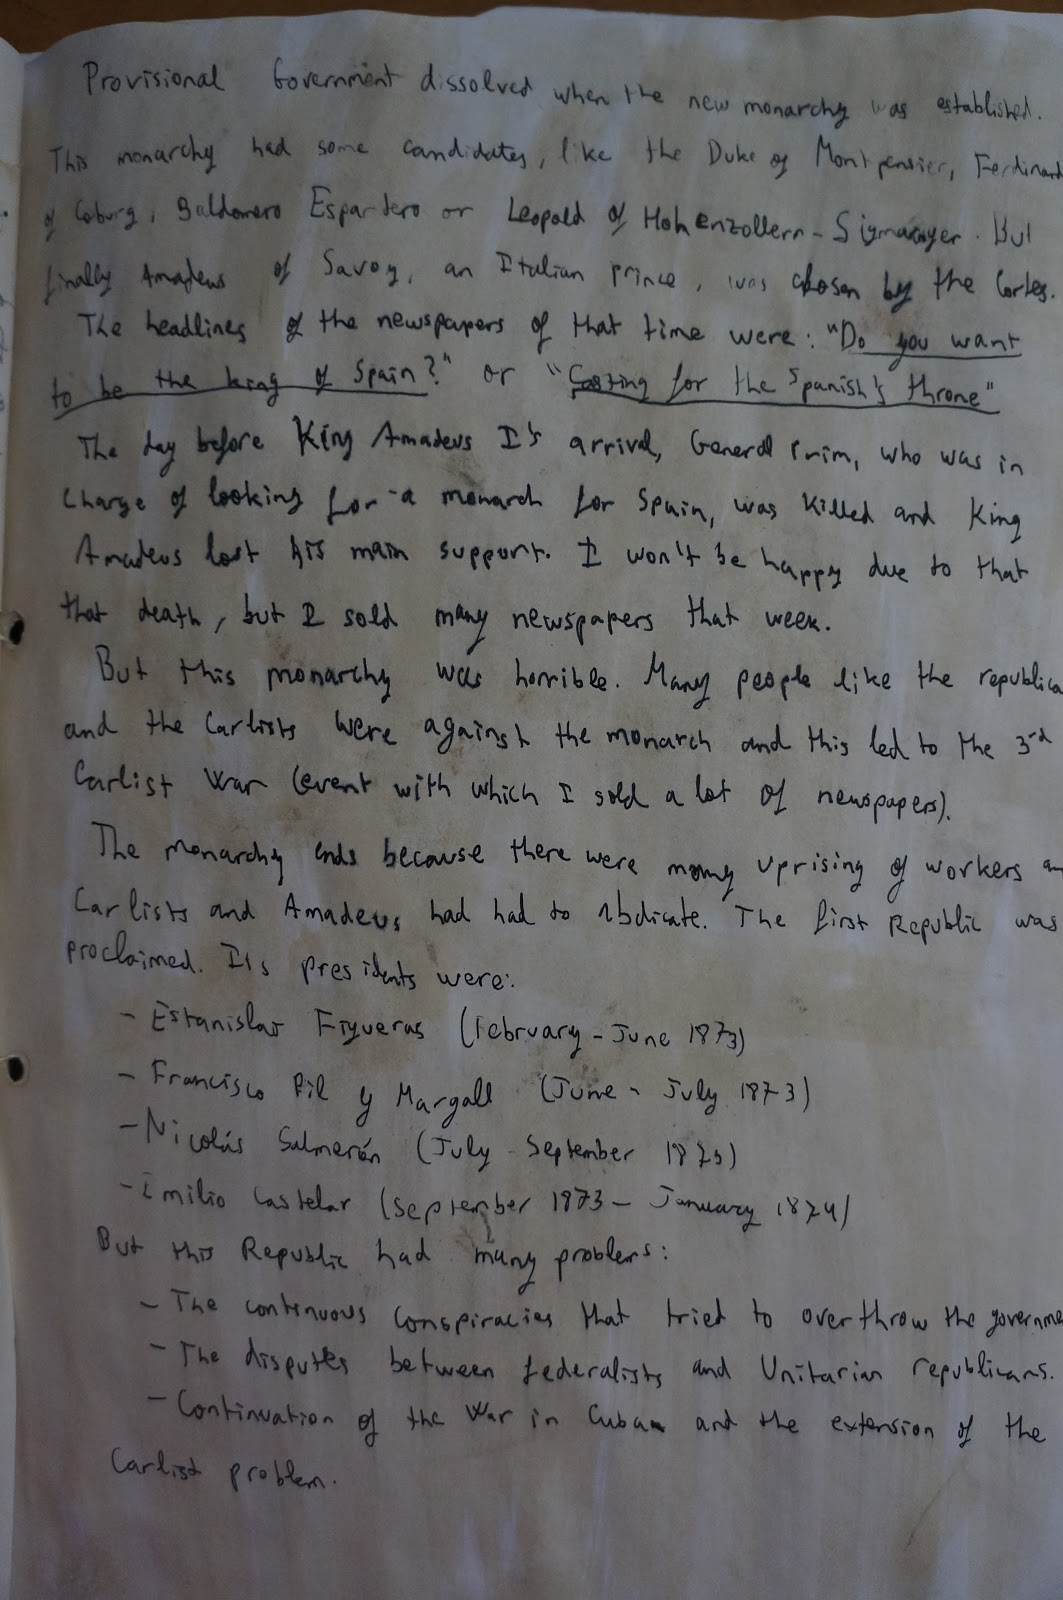 Provisional Government dissolved when the new monarchy was established.
This monarchy had some candidates, like the Duke of Montpensier, Ferdinand
of Coburg, Baldomero Espartero or Leopold of Hohenzollern - Sigmaringer. But
finally Amadeus of Savoy, an Italian prince, was chosen by the Cortes.
The headlines of the newspapers of that time were: "Do you want
to be the king of Spain?" or "Casting for the Spanish's throne"
The day before King Amadeus I's arrival, General Prim, who was in
charge of looking for a monarch for Spain, was killed and King
Amadeus lost his main support. I won't be happy due to that
that death, but I sold many newspapers that week.
But this monarchy was horrible. Many people like the republica
and the Carlists were against the monarch and this led to the 3rd
Carlist War (event with which I sold a lot of newspapers).
The monarchy ends because there were many uprising of workers an
Carlists and Amadeus had had to abdicate. The first Republic was
proclaimed. Its presidents were:
- Estanislao Figueras (February - June 1873)
- Francisco Pi1 y Margall (June - July 1873)
- Nicolás Salmerón (July - September 1873)
- Emilio Castelar (September 1873 - January 1874)
But this Republic had many problems:
- The continuous conspiracies that tried to overthrow the governme
- The disputes between federalists and Unitarian republicans.
- Continuation of the War in Cuba and the extension of the
Carlist problem.